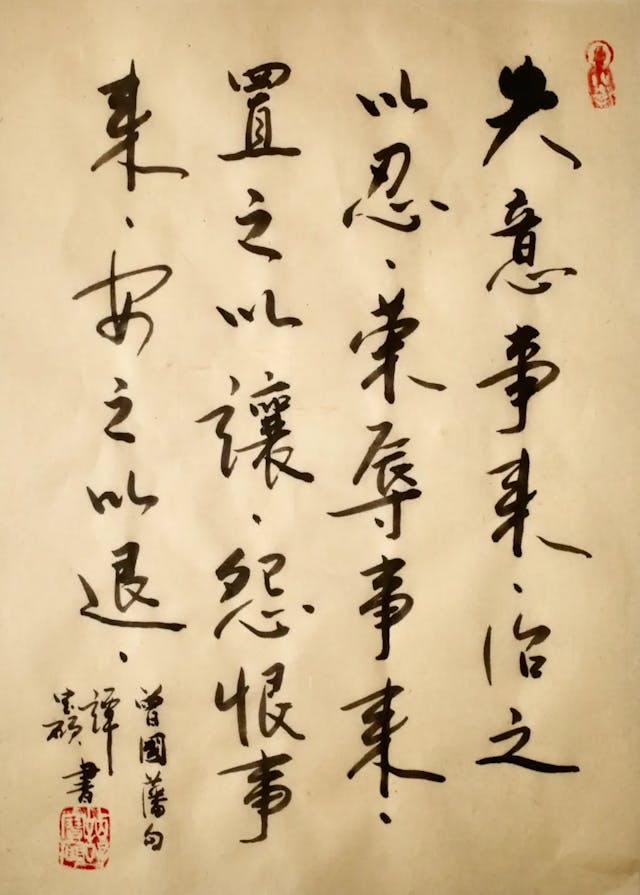 失意事来、治之
以忍、荣辱事来、
置之以讓、怨恨事
来、安之以退、
曾國藩句
譚
書